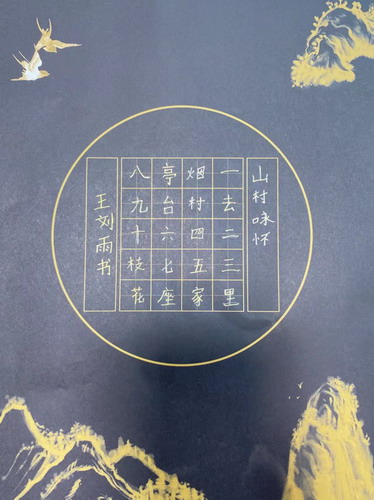 山村咏怀
一去二三里
烟村四五家
亭台六七座
八九十枝花
王刘雨书